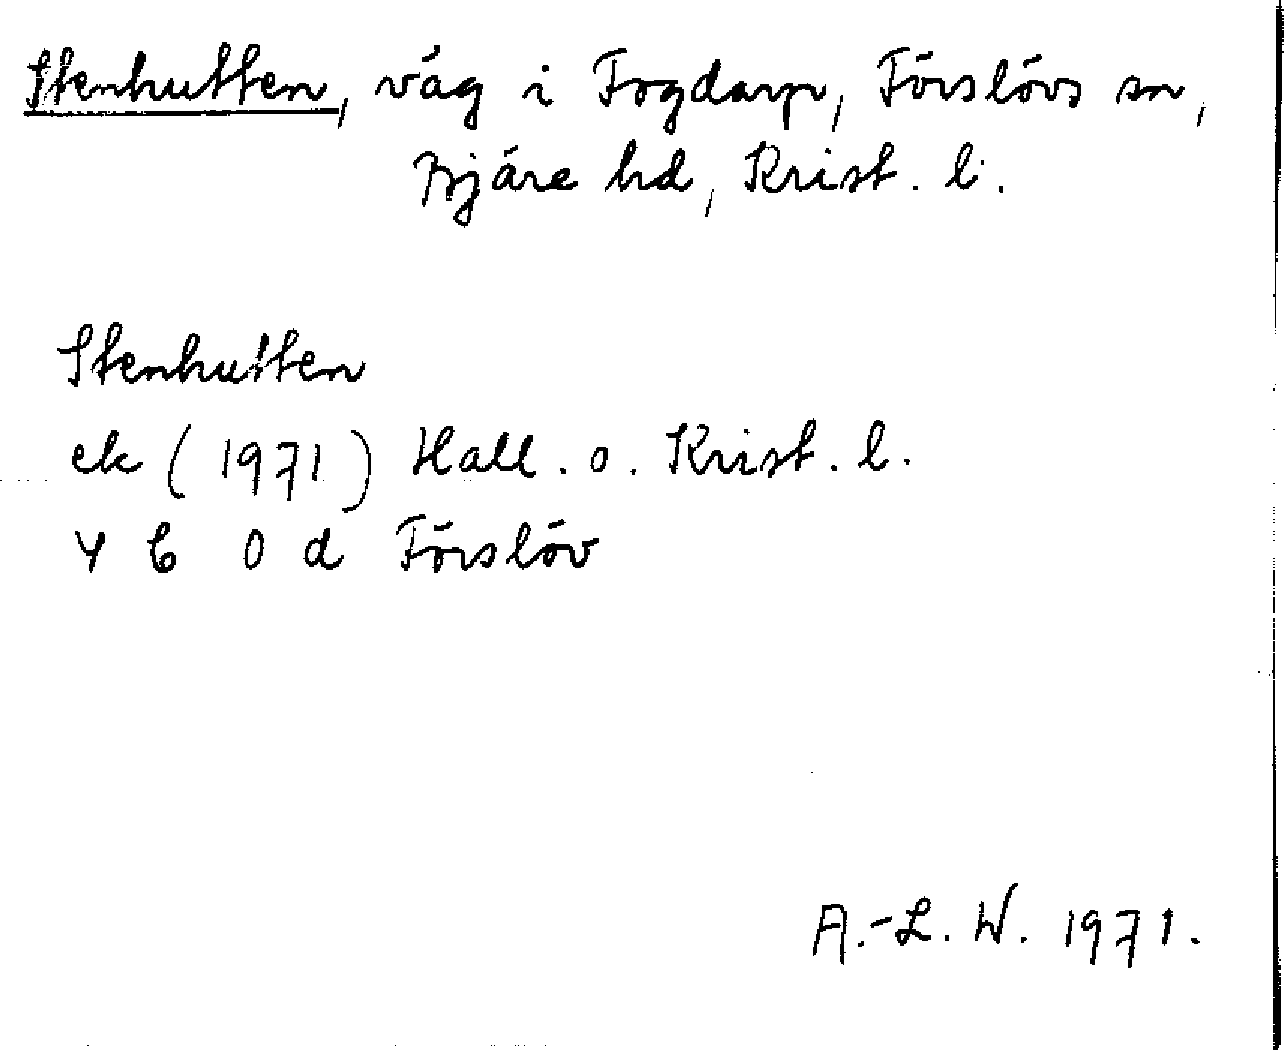 Stenhutten, väg i Fogdarp, Förslövs sn,
Bjäre hd, Krist. l.
Stenhutten
ek (1971) Hall. o. Krist. l.
4 C 0 d Förslöv
A.-L. W. 1971.